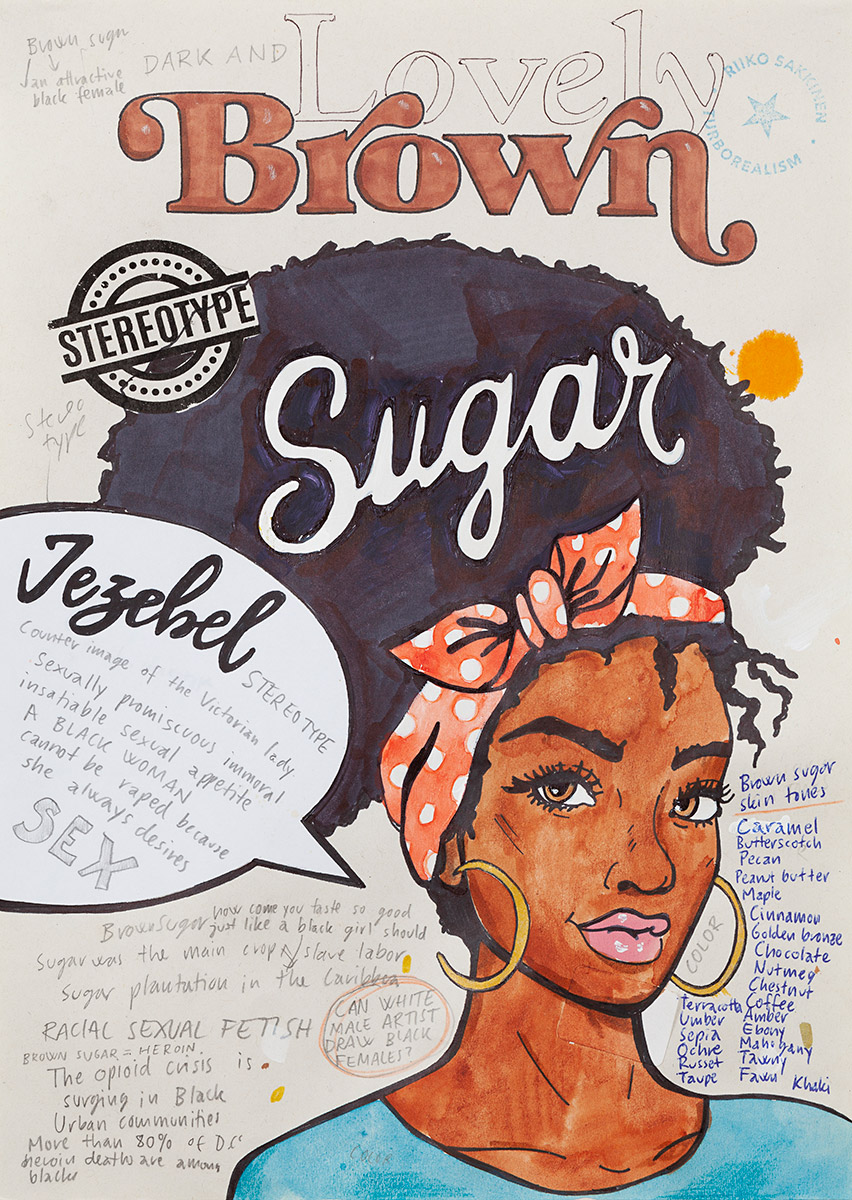 Brown sugar
an attractive
black female
DARK AND
Lovely
Brown
Sugar
RIIKO SAKKINEN
TURBOREALISM
STEREOTYPE
Stereo
type
Jezebel
STEREOTYPE
Counter image of the Victorian lady
Sexually promiscuous immoral
insatiable sexual appetite
A BLACK WOMAN
cannot be raped because
she always desires
SEX
Brown Sugar how come you taste so good
just like a black girl should
Sugar was the main crop slave labor
Sugar plantation in the
RACIAL SEXUAL FETISH
BROWN SUGAR = HEROIN
The opioid crisis is
surging in Black
Urban communities
More than 80% of D.C'
heroin death are among
blacks
CAN WHITE
MALE ARTIST
DRAW BLACK
FEMALES?
COLOR
Brown sugar
skin tones
Caramel
Butterscotch
Pecan
Peanut butter
Maple
Cinnamon
Golden bronze
Chocolate
Nutmeg
Chestnut
Coffee
Amber
Ebony
Mahogany
Tawny
Fawn
Khaki
Terracotta
Umber
Sepia
Ochre
Russet
Taupe